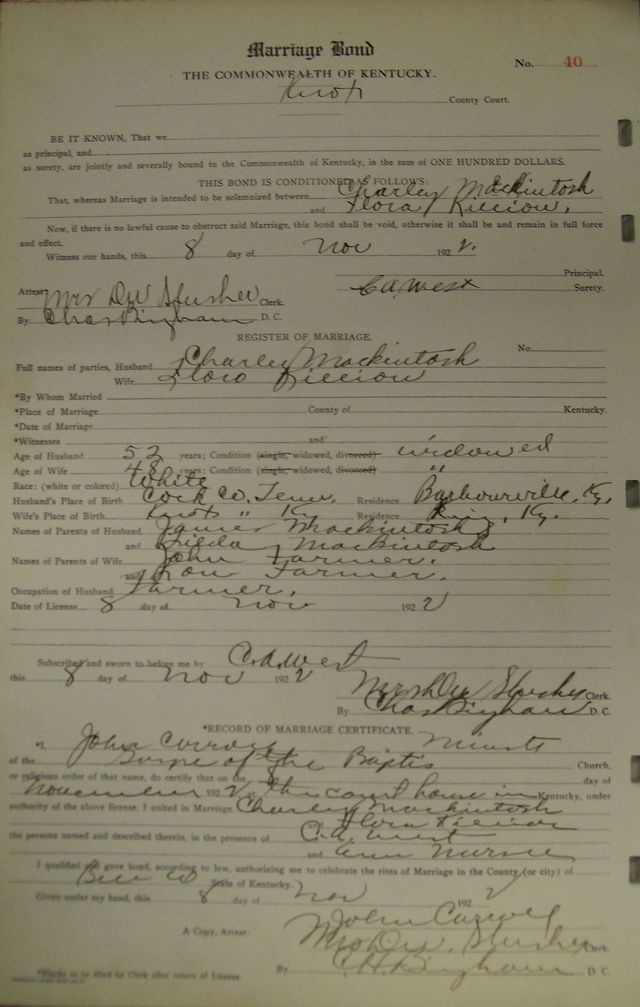 Marriage Bond
No. 40
THE COMMONWEALTH OF KENTUCKY.
Knox County Court.
BE IT KNOWN, That we
as principal, and
as surety, are jointly and severally bound to the Commonwealth of Kentucky, in the sum of ONE HUNDRED DOLLARS.
THIS BOND IS CONDITIONED AS FOLLOWS:
That, whereas Marriage is intended to be solemnized between Charley Mackintosh
and Flora
Now, if there is no lawful cause to obstruct said Marriage, this bond shall be void, otherwise it shall be and remain in full force
and effect.
Witness our hands, this 8 day of Nov 1922.
Principal.
Attest: Mrs Dw Slusher Clerk. C a West Surety.
By Chas Bingham D. C.
REGISTER OF MARRIAGE.
No.
Full names of parties, Husband Charley Mackintosh
Wife
*By Whom Married
*Place of Marriage County of Kentucky.
*Date of Marriage
*Witnesses and
Age of Husband 52 years; Condition (single, widowed, divorced) widowed
Age of Wife 48 years; Condition (single, widowed, divorced) "
Race: (white or colored) White
Husband's Place of Birth Cock Co. Tenn. Residence Barbourville, Ky.
Wife's Place of Birth Knox " Ky Residence Ky.
Names of Parents of Husband James Mackintosh
and Mackintosh
Names of Parents of Wife John Farmer.
and Farmer.
Occupation of Husband Farmer.
Date of License 8 day of Nov 1922
Subscribed and sworn to before me by C. a. West
this 8 day of Nov 1922
Mrs Dw Slusher Clerk.
By Chas Bingham D. C.
*RECORD OF MARRIAGE CERTIFICATE.
*I, John
of the of the Baptis Church,
or religious order of that name, do certify that on the 8 day of
November 1922 at the court house in Kentucky, under
authority of the above license, I united in Marriage Charley Mackintosh
Flora
the persons named and described therein, in the presence of C. a. West
and
I qualified and gave bond, according to law, authorizing me to celebrate the rites of Marriage in the County (or city) of
State of Kentucky.
Given under my hand, this 8 day of Nov 1922
John
A Copy, Attest: Mrs Dw. Slusher Clerk.
By C. H. Bingham D. C.
*Blanks to be filled by Clerk after return of License.